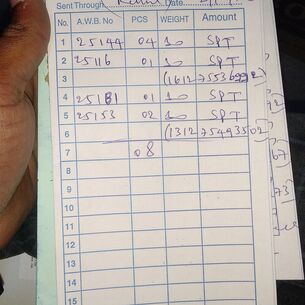 Sent Through Date
No. A.W.B. No PCS WEIGHT Amount
1 25144 04 10 SPT
2 25116 01 10 SPT
3
4 25181 01 10 SPT
5 25153 02 10 SPT
6 (131275493502)
7 08
8
9
10
11
12
13
14
15